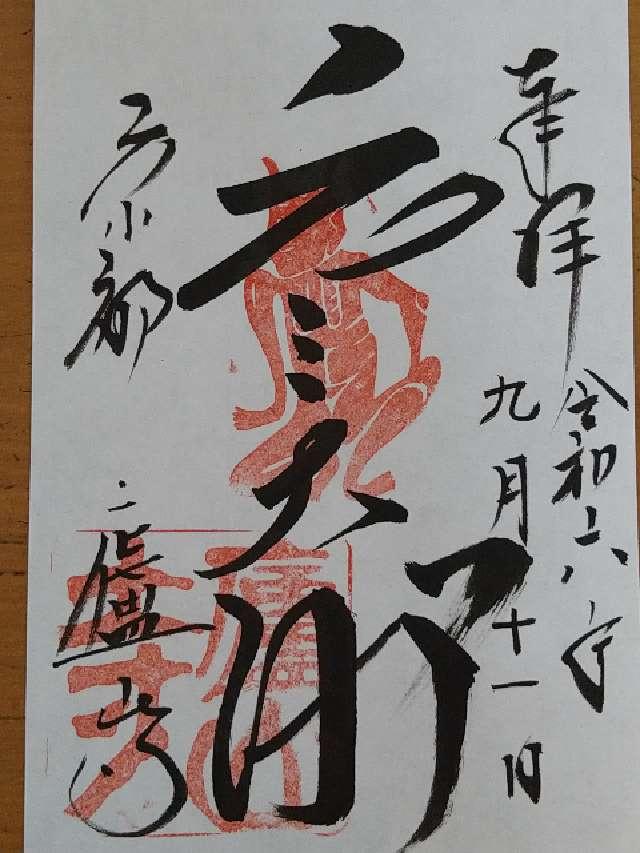 奉拝
令和六年
九月十一日
元三大師
京都
廬山寺